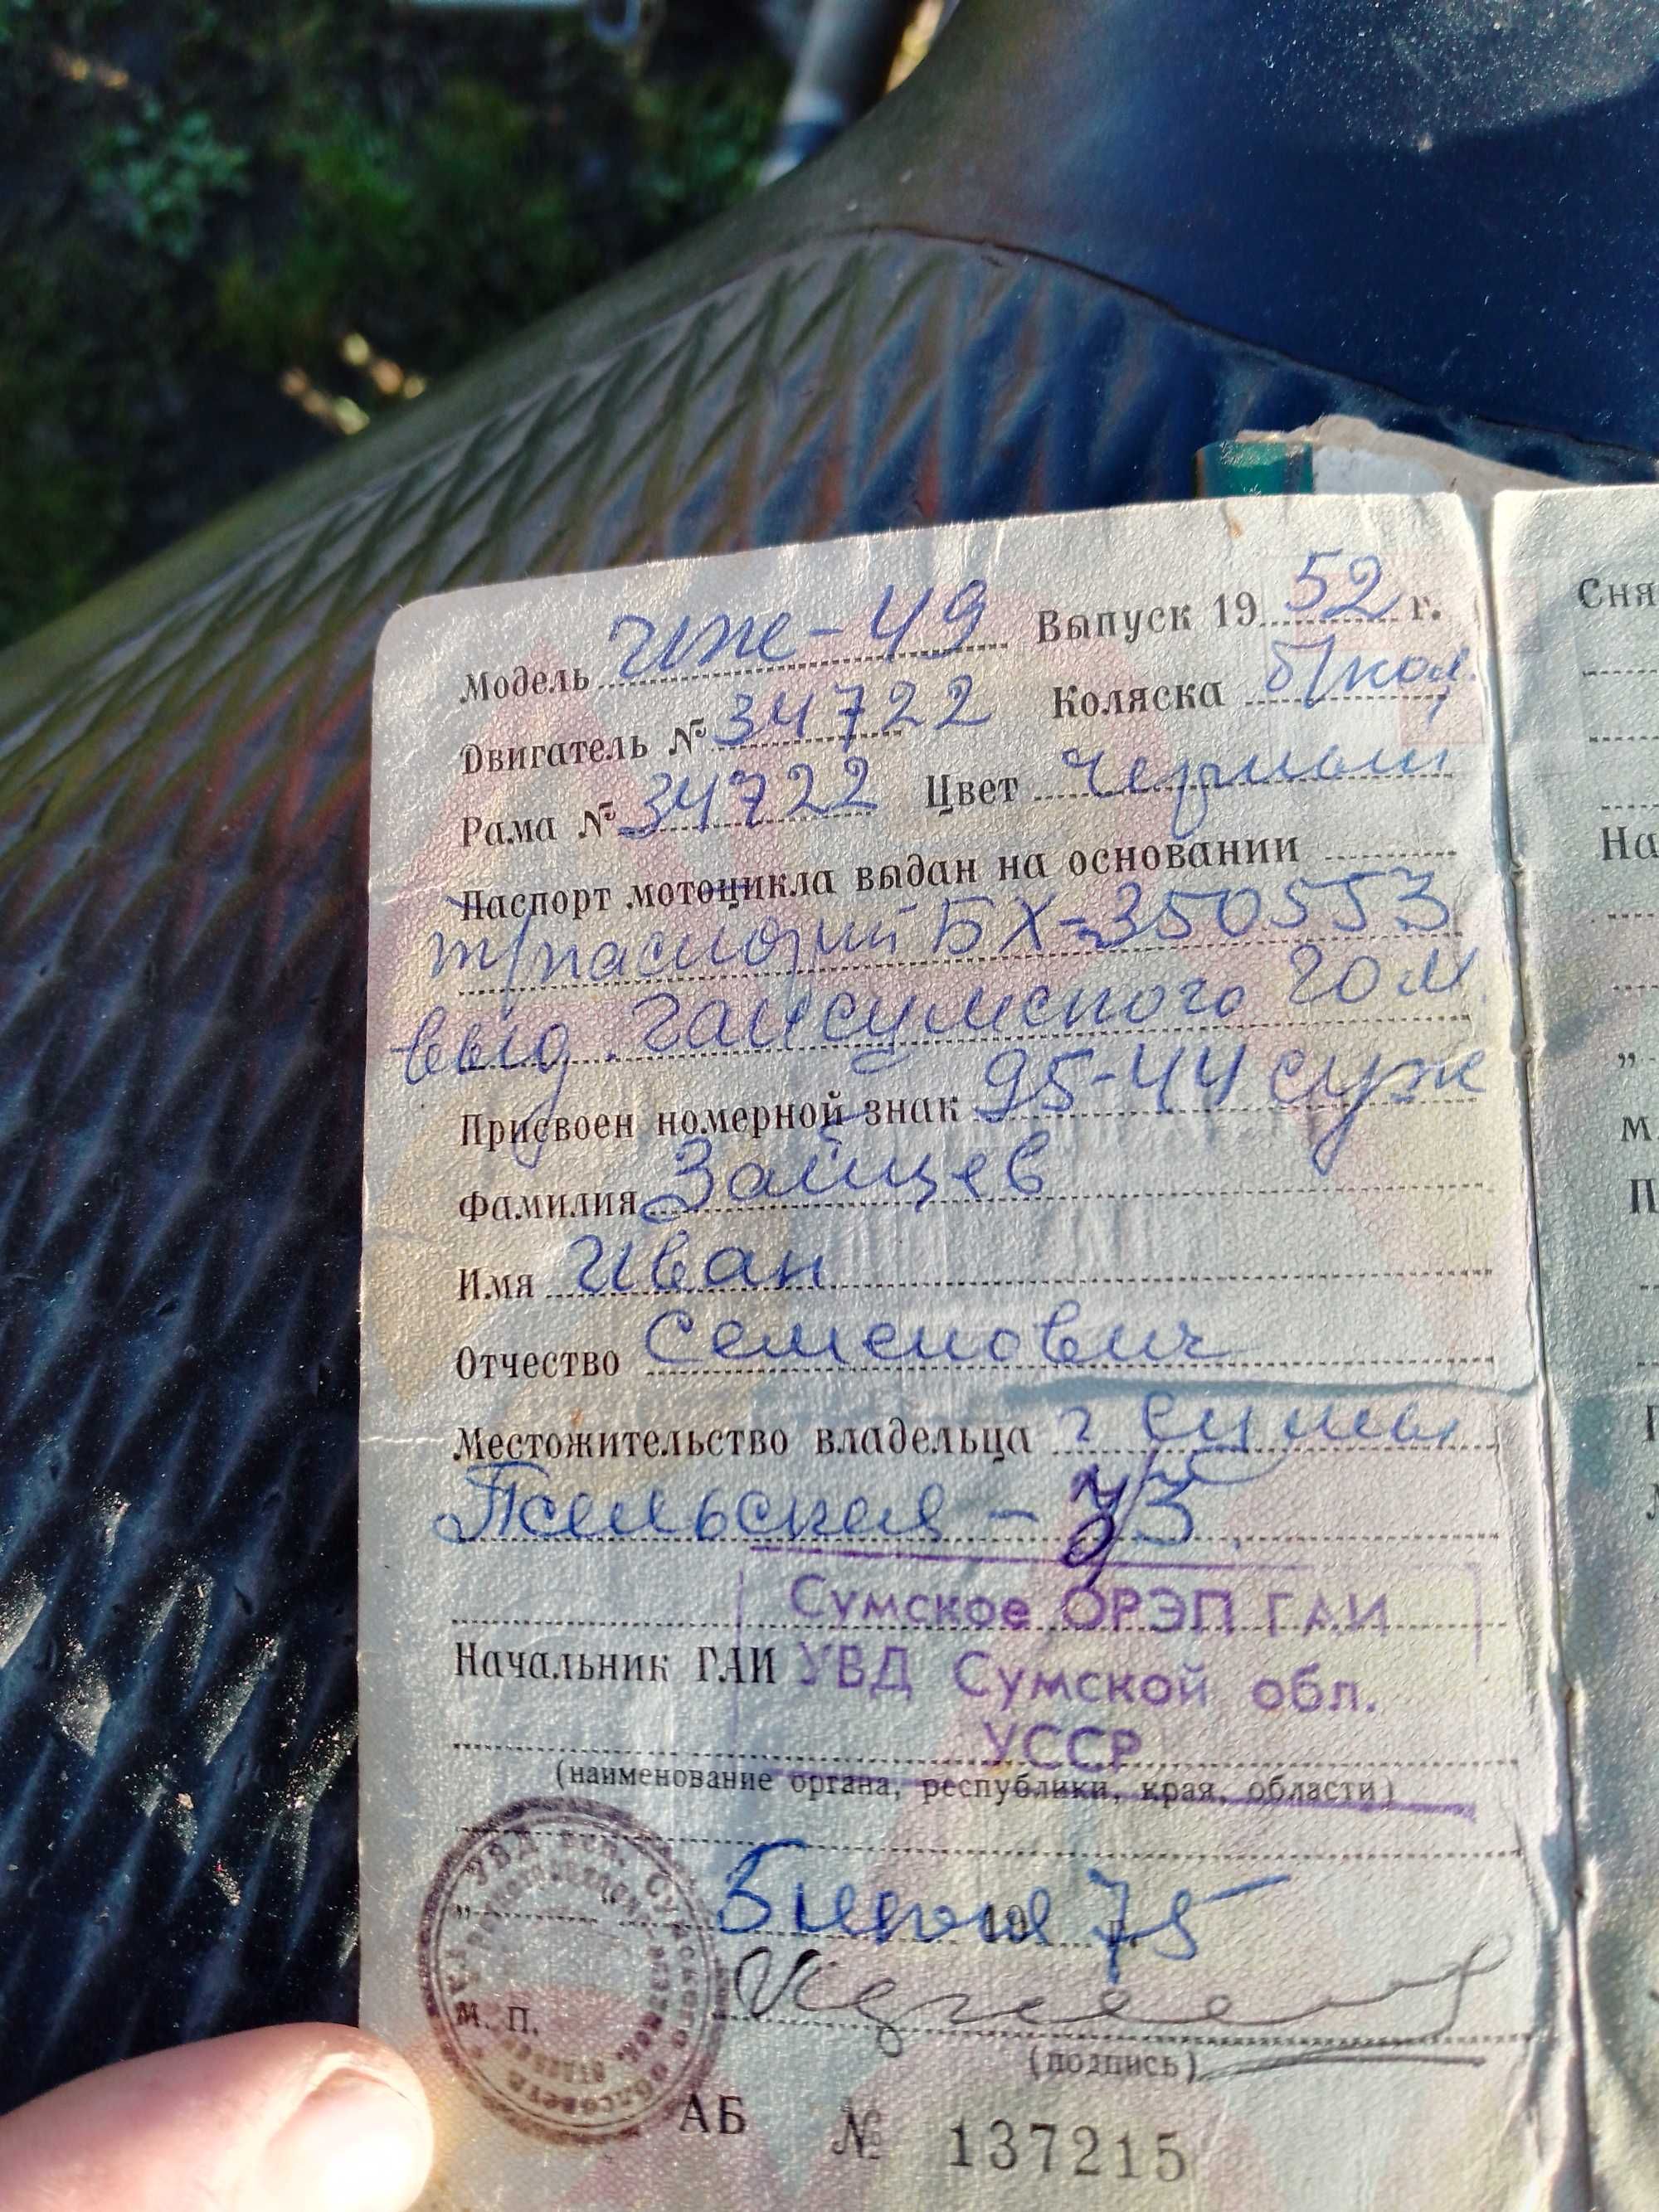 Модель Иж-49 Выпуск 1952 г.
Двигатель № 34722 Коляска б/кол.
Рама № 34722 Цвет Черный
Паспорт мотоцикла выдан на основании
т/паспорт БХ-350553
выд. ГАИ Сумского ГОМ.
Присвоен номерной знак 95-44 суж
Фамилия Зайцев
Имя Иван
Отчество Семенович
Местожительство владельца г Сумы
Псельская - 3/3
Сумское ОРЭП ГАИ
Начальник ГАИ УВД Сумской обл.
УССР
(наименование органа, республики, края, области)
75
М. П.
(подпись)
АБ № 137215
Сня
На
„
м.
П